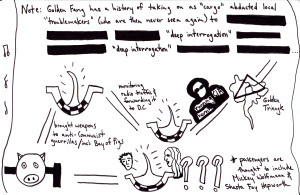 Note: Golden Fang has a history of taking on as "cargo" abducted local
"troublemakers" (who are then never seen again) to
"deep interrogation"
"deep interrogation"
monitoring
radio traffic &
forwarding it
to D.C.
Golden
Triangle
brought weapons
to anti-Communist
guerrillas/incl Bay of Pigs
* passengers are
thought to include
Mickey Wolfmann &
Shasta Fay Hepworth